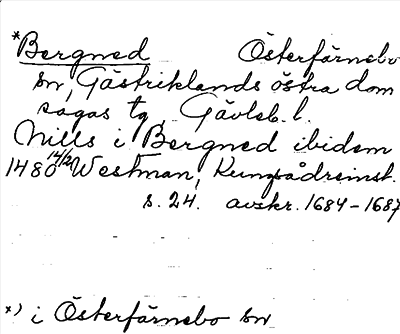 *Bergned Österfärnebo
sn, Gästriklands östra dom
sagas tg, Gävleb. l.
Nills i Bergned ibidem
1480 14/2 Westman, Kungsådreinst.
s. 24. avskr. 1684-1687
*) i Österfärnebo sn